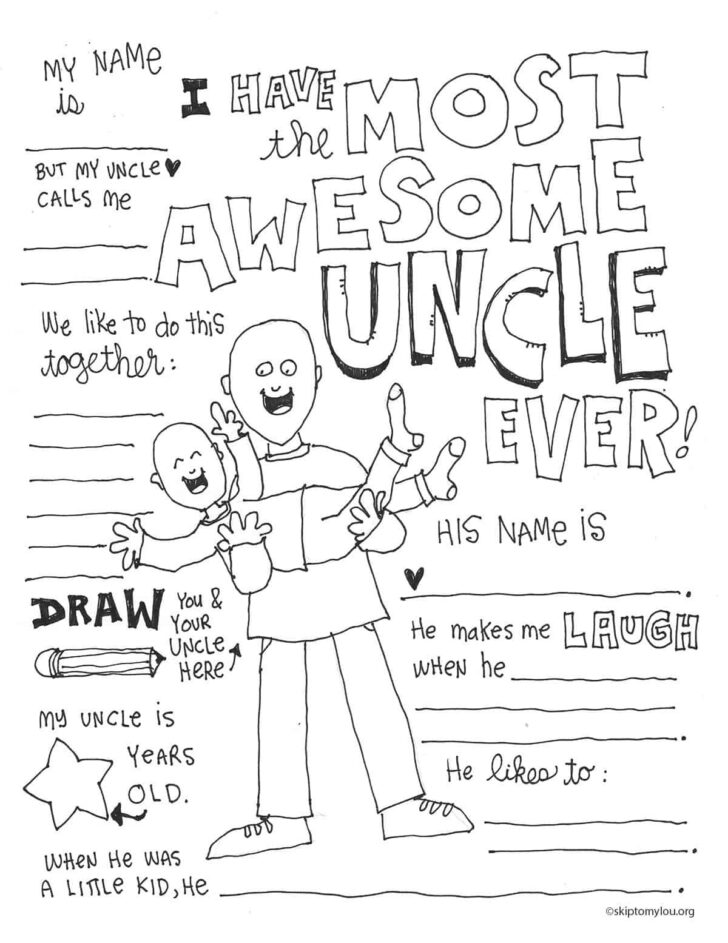 MY NAME
is
BUT MY UNCLE ♥
CALLS Me
I HAVE
the MOST
AWESOME
UNCLE
EVER!
We like to do this
together:
DRAW
You &
YOUR
UNCLE
HERE
MY UNCLE iS
YeARS
OLD.
WHEN He WAS
A LITTLE KID, He
HiS NAMe iS
♥ .
He makes me LAUGH
WHEN he
.
He likes to:
.
.
©skiptomylou.org